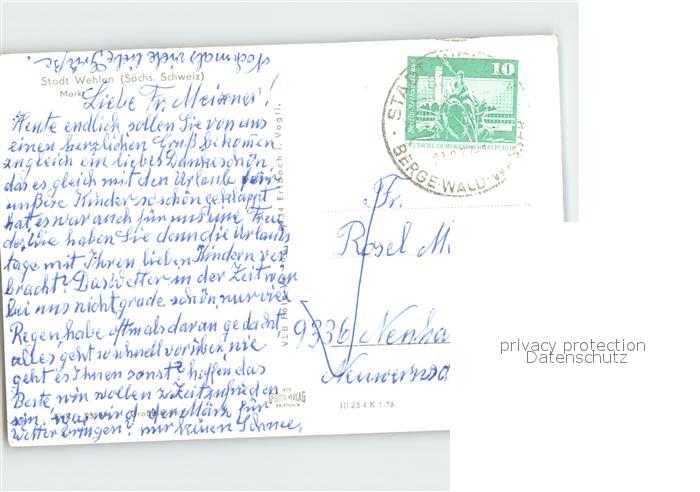 Nochmals viele liebe Grüße.
Stadt Wehlen (Sächs. Schweiz)
Markt
Liebe Fr. Meixner!
Heute endlich sollen Sie von uns
einen herzlichen Gruß bekomen
zugleich ein liebes Dankeschön
das es gleich mit den Urlaub für
unßere Kinder so schön geklappt
hat es war auch für uns eine Freu
de. Wie haben Sie denn die Urlaubs
tage mit Ihren lieben Kindern ver
bracht? Das Wetter in der Zeit war
bei uns nicht grade schön, nur viel
Regen, habe oftmals daran gedacht
alles geht so schnell vorüber, wie
geht es Ihnen sonst? hoffen das
Beste wir wollen z. Zeit zufrieden
sein, was wird den März für
Wetter bringen? nur keinen Schnee,
VEB
Erlbach i. Vogtl.
10
DEUTSCHE DEMOKRATISCHE REPUBLIK
BERGE·WALD·WASSER
Fr.
Rosel M
9336
VERLAG
III 23 4 K 1-76
privacy protection
Datenschutz